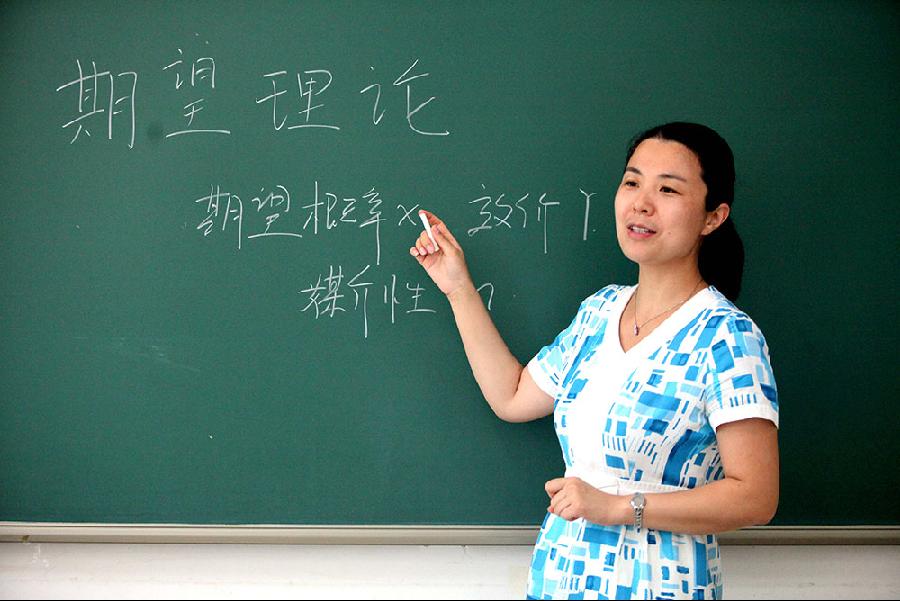 期望理论
期望概率 x 效价 Y
媒介性